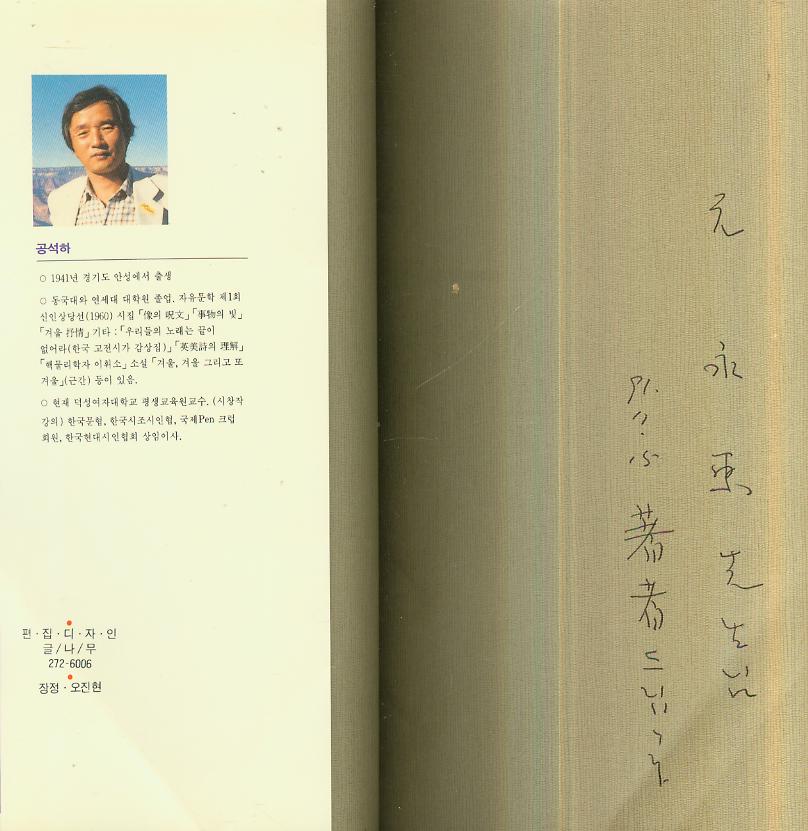 공석하
○ 1941년 경기도 안성에서 출생
○ 동국대와 연세대 대학원 졸업. 자유문학 제1회
신인상당선(1960) 시집 「像의 呪文」 「事物의 빛」
「겨울 抒情」 기타 : 「우리들의 노래는 끝이
없어라(한국 고전시가 감상집)」 「英美詩의 理解」
「핵물리학자 이휘소」 소설 「겨울, 겨울 그리고 또
겨울」(근간) 등이 있음.
○ 현재 덕성여자대학교 평생교육원교수. (시창작
강의) 한국문협, 한국시조시인협, 국제Pen 크럽
회원, 한국현대시인협회 상임이사.
편·집·디·자·인
글/나/무
272-6006
장정·오진현
元永東先生님
著者드림